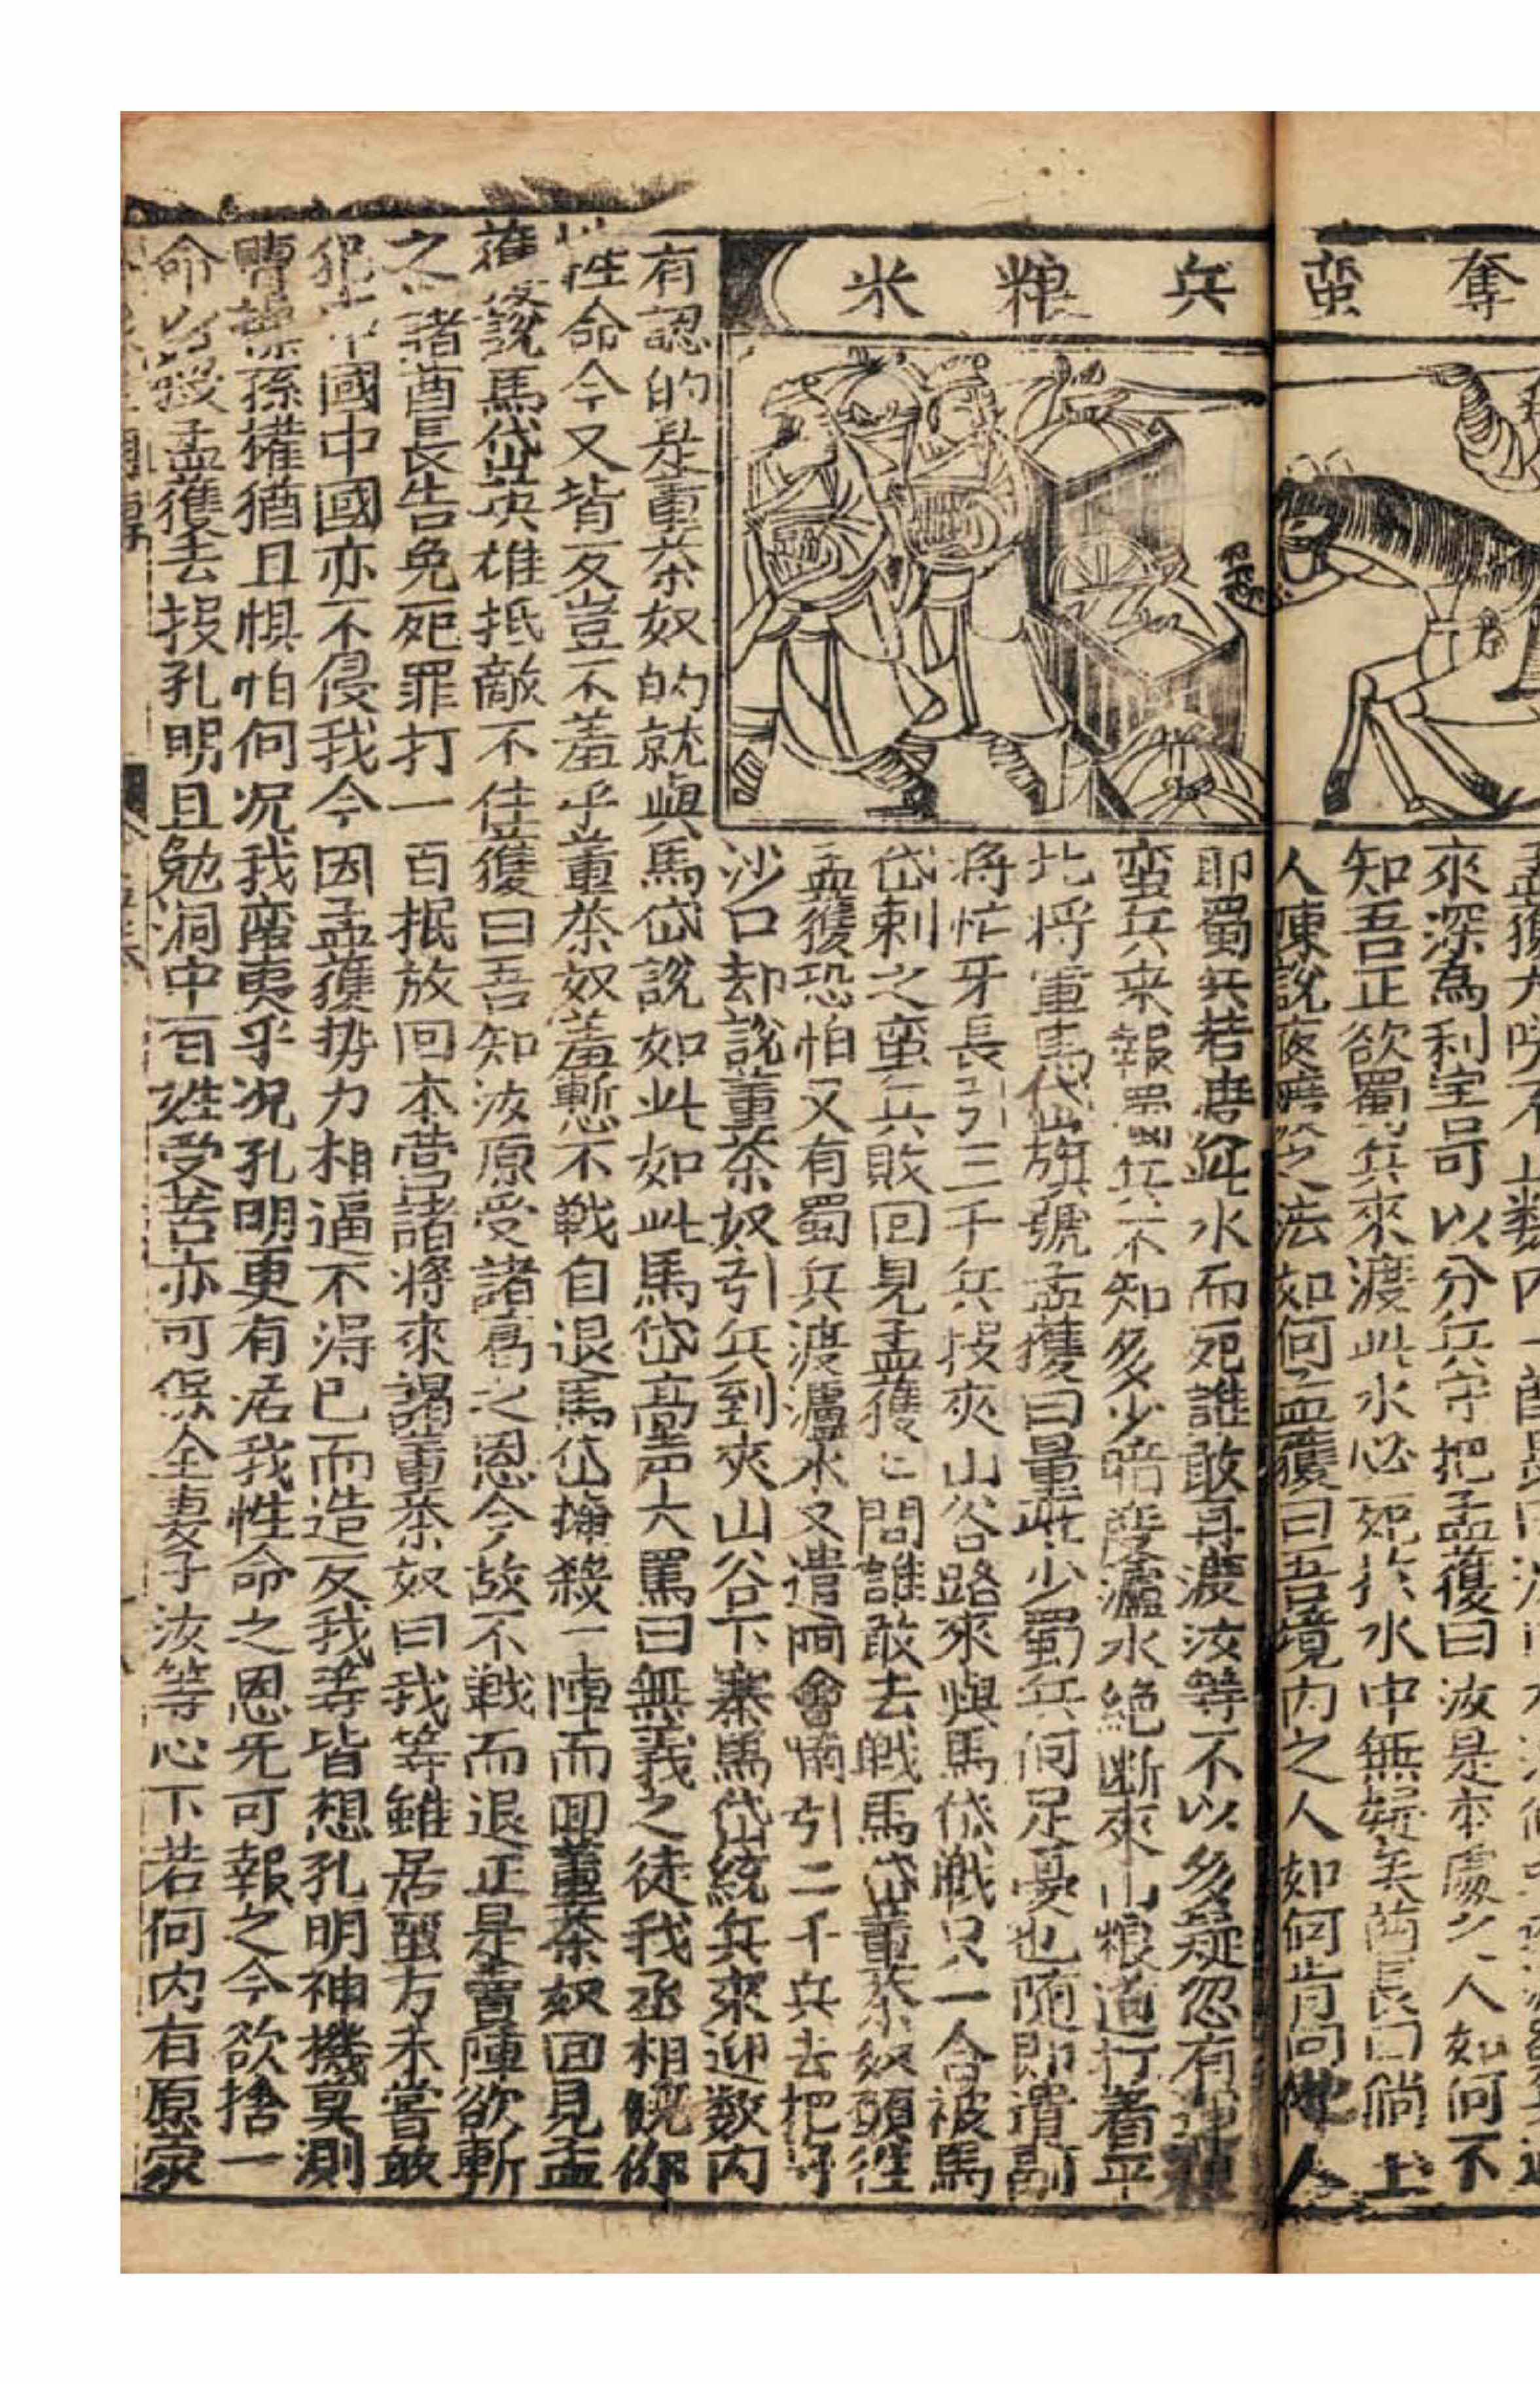 奪蛮兵粮米
來深為利害哥以分兵守把孟獲曰汝是本處之人如何不
知吾正欲蜀兵來渡此水必死於水中無疑矣酋長曰倘土
人陳說夜渡之法如何孟獲曰吾境内之人如何肯向他人
耶蜀兵若唐此水而死誰敢再渡汝等不以多疑忽有
蛮兵来報蜀兵不知多少暗渡瀘水絶断夾山粮道打着平
北将軍馬岱旗號孟獲曰量此少蜀兵何足憂也随即遣副
将忙牙長引三千兵投夾山谷路來與馬岱戦只一合被馬
岱剌之蛮兵敗回見孟獲〻問誰敢去戦馬岱董茶奴願徃
孟獲恐怕又有蜀兵渡瀘水又遣阿會喃引二千兵去把守
沙口却説董茶奴引兵到夾山谷下寨馬岱統兵來迎数内
有認的是董茶奴的就與馬岱說如此如此馬岱高声大罵曰無義之徒我丞相饒你
性命今又背反豈不羞乎董茶奴羞慙不戦自退馬岱掩殺一陣而回董茶奴回見孟
獲説馬岱英雄抵敵不住獲曰吾知汝原受諸葛之恩今故不戦而退正是賣陣欲斬
之諸酋長告免死罪打一百放回本营諸將來謁董茶奴曰我等雖居蛮方未嘗敢
犯中國中國亦不侵我今因孟獲勢力相逼不得已而造反我等皆想孔明神機莫測
曹操孫権猶且惧怕何况我蛮夷乎况孔明更有活我性命之恩无可報之今欲捨一
命殺孟獲去投孔明且勉洞中百姓受苦亦可保全妻子汝等心下若何内有原蒙